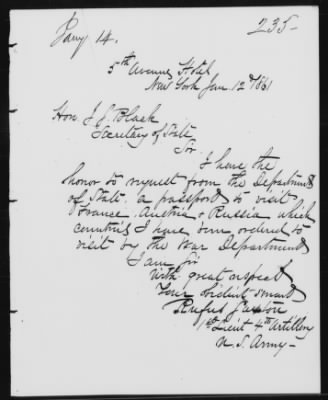 Jany 14.
235-
5th Avenue Hotel
New York Jan 12th 1861
Hon J. S. Black
Secretary of State
Sir
I have the
honor to request from the Department
of State a passport to visit
France Austria & Russia which
countries I have been ordered to
visit by the War Department
I am Sir
With great respect
Your obedient servant
Rufus Saxton
1st Lieut 4th Artillery
U. S. Army-